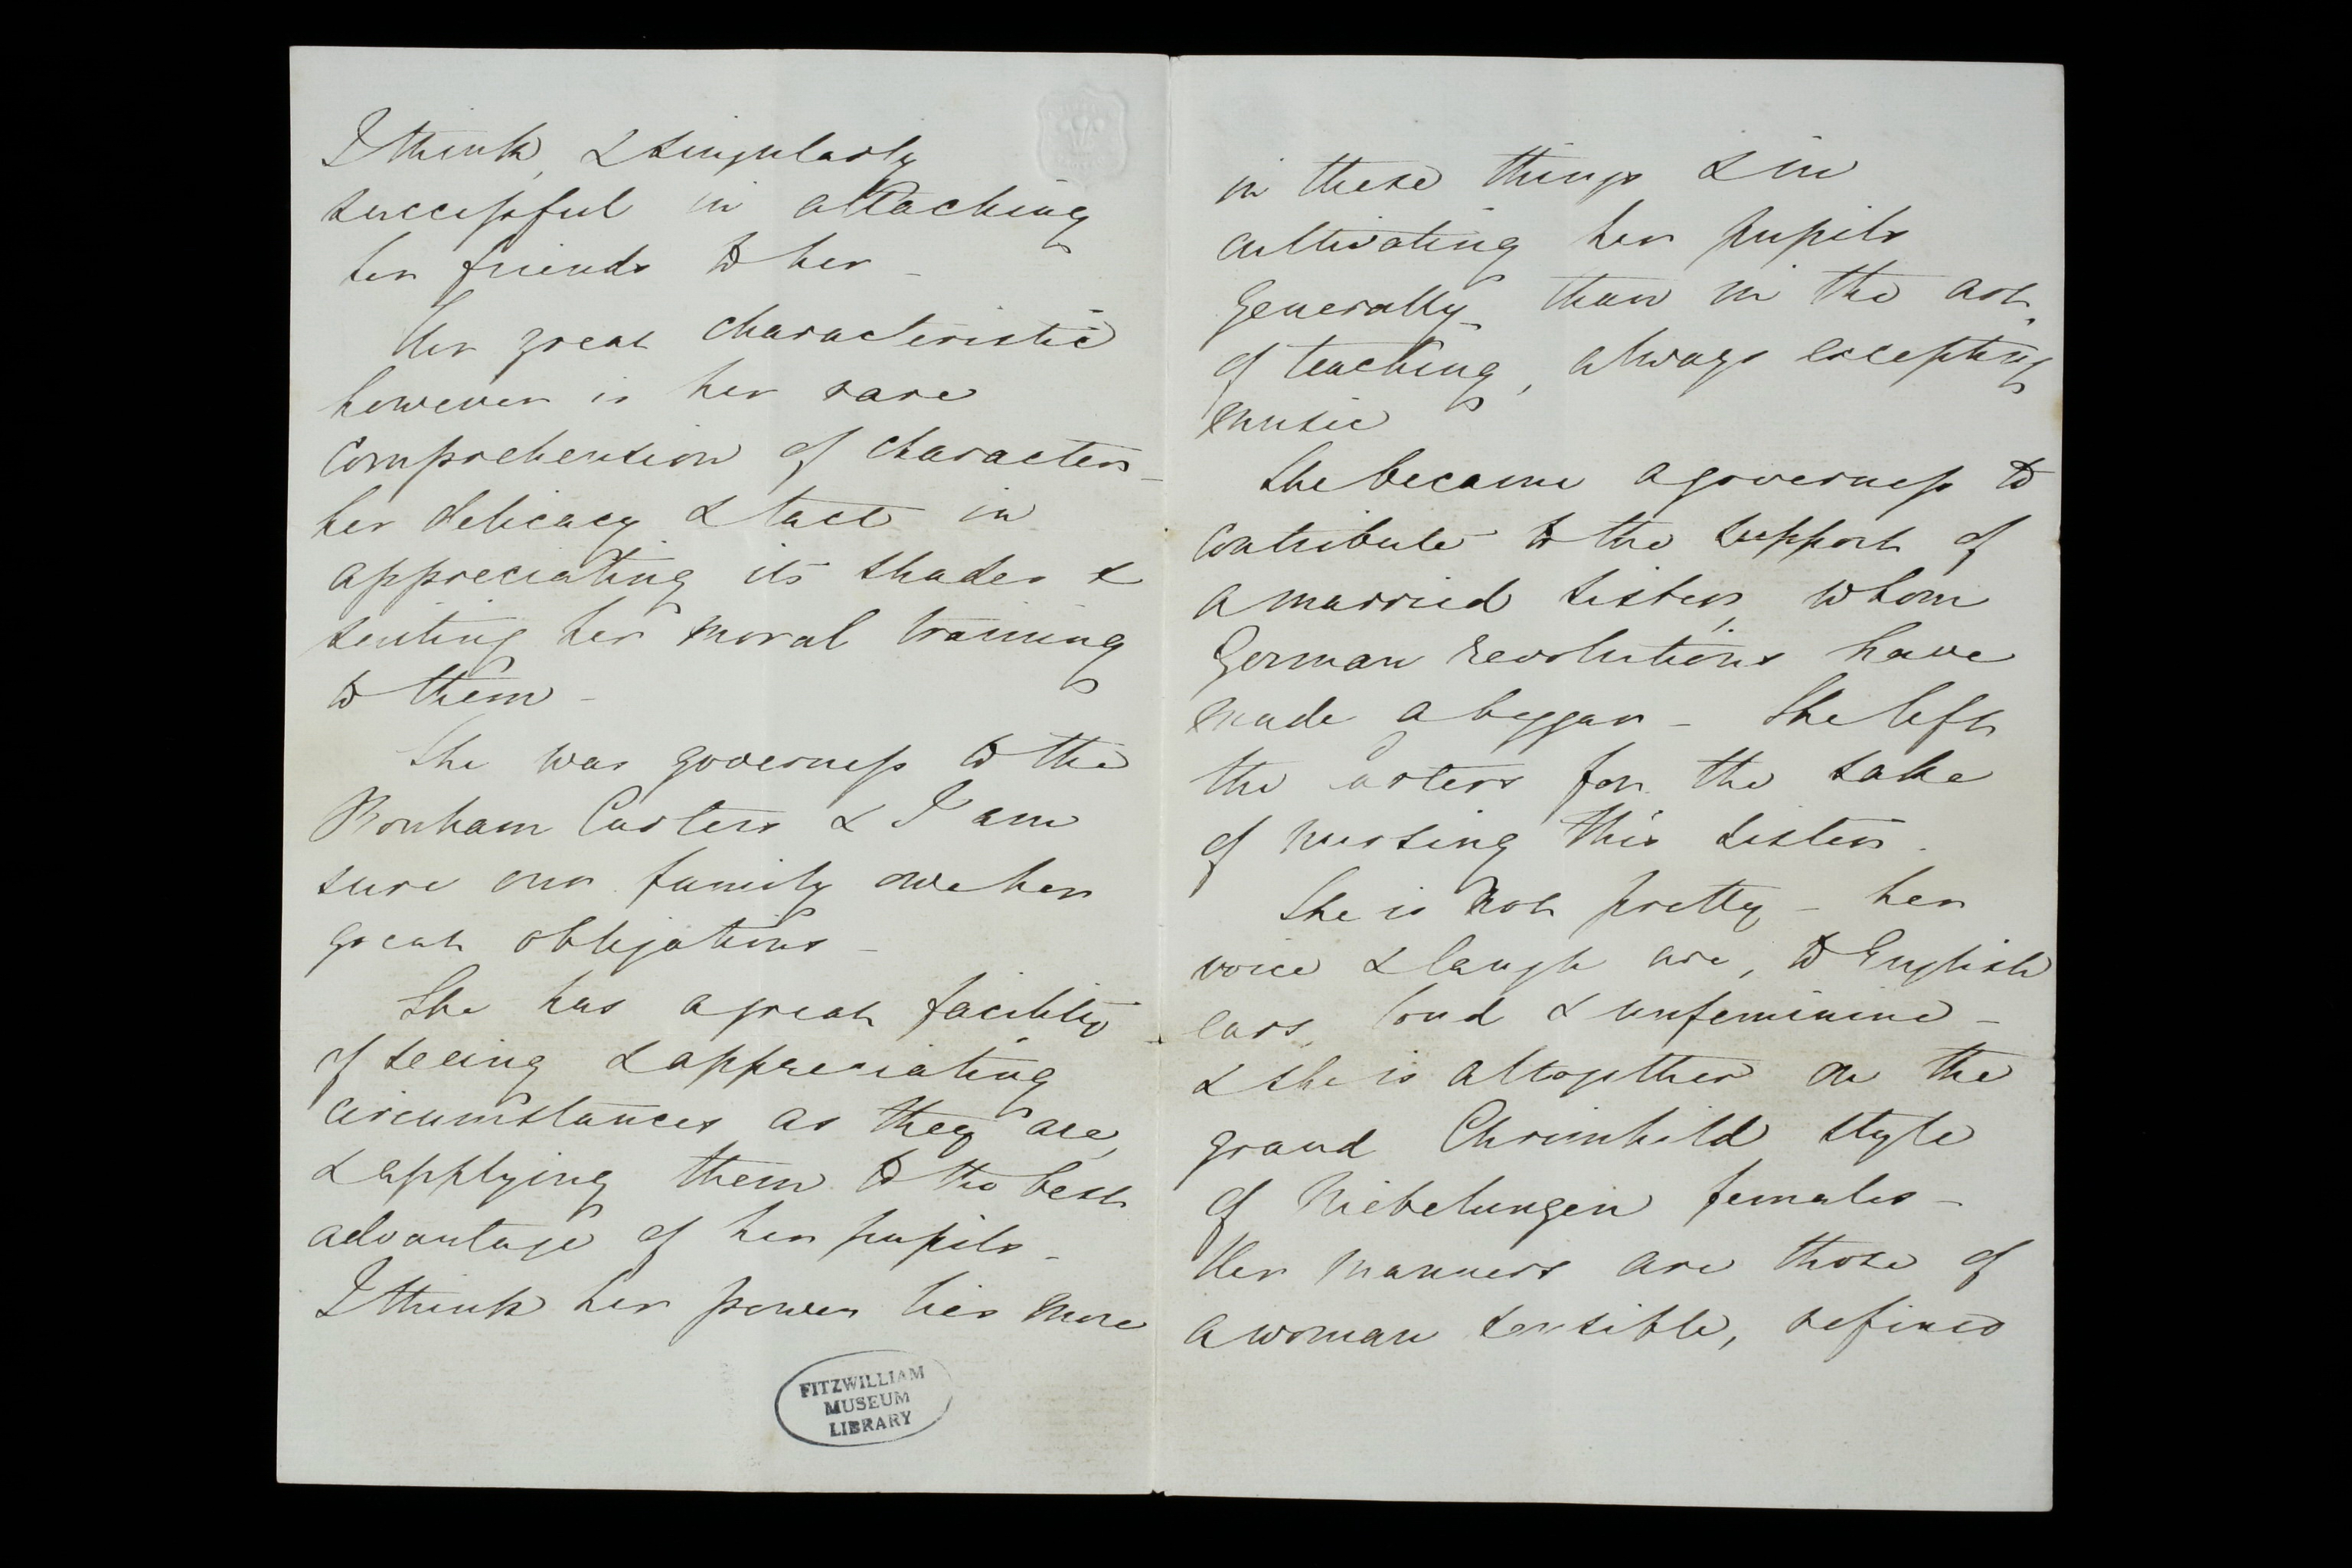 I think, & singularly
successful in attaching
her friends to her -
Her great characteristic
however is her rare
comprehension of character -
her delicacy & tact in
appreciating its shades &
suiting her moral training
to them -
She was governess to the
Bonham Carters & I am
sure our family owe her
great obligations -
She has a great facility
of seeing & appreciating
circumstances as they are,
& applying them to the best
advantage of her pupils -
I think her power lies more
FITZWILLIAM
MUSEUM
LIBRARY
in these things & in
cultivating her pupils
generally than in the art
of teaching, always excepting
music
She became a governess to
contribute to the support of
a married sister, whom
German revolutions have
made a beggar - She left
the Carters for the sake
of nursing this sister.
She is not pretty - her
voice & laugh are, to English
ears, loud & unfeminine -
& she is altogether on the
grand Chrimhild style
of Niebelungen females -
Her manners are those of
a woman sensible, refined